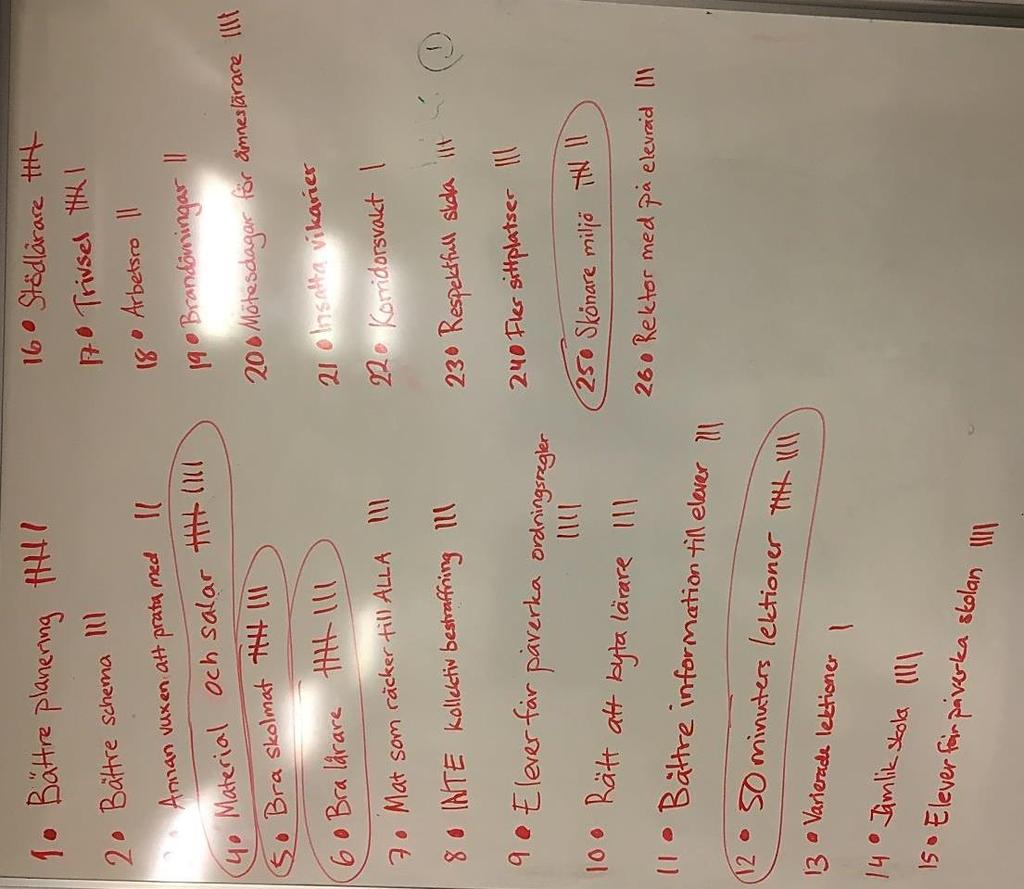 1 • Bättre planering ||||  |
2 • Bättre schema |||
• Annan vuxen att prata med ||
4 • Material och salar |||| ||||
5 • Bra skolmat |||| |||
6 • Bra lärare |||| |||
7 • Mat som räcker till ALLA |||
8 • INTE kollektiv bestraffning |||
9 • Elever får påverka ordningsregler
||||
10 • Rätt att byta lärare |||
11 • Bättre information till elever |||
12 • 50 minuters lektioner |||| ||||
13 • Varierade lektioner |
14 • Jämlik skola ||||
15 • Elever får påverka skolan ||||
16 • Stödlärare ||||
17 • Trivsel |||| |
18 • Arbetsro ||
19 • Brandövningar ||
20 • Mötesdagar för ämneslärare ||||
21 • Insatta vikarier
22 • Korridorsvakt |
23 • Respektfull skola |||
24 • Fler sittplatser |||
25 • Skönare miljö |||| ||
26 • Rektor med på elevråd |||
1